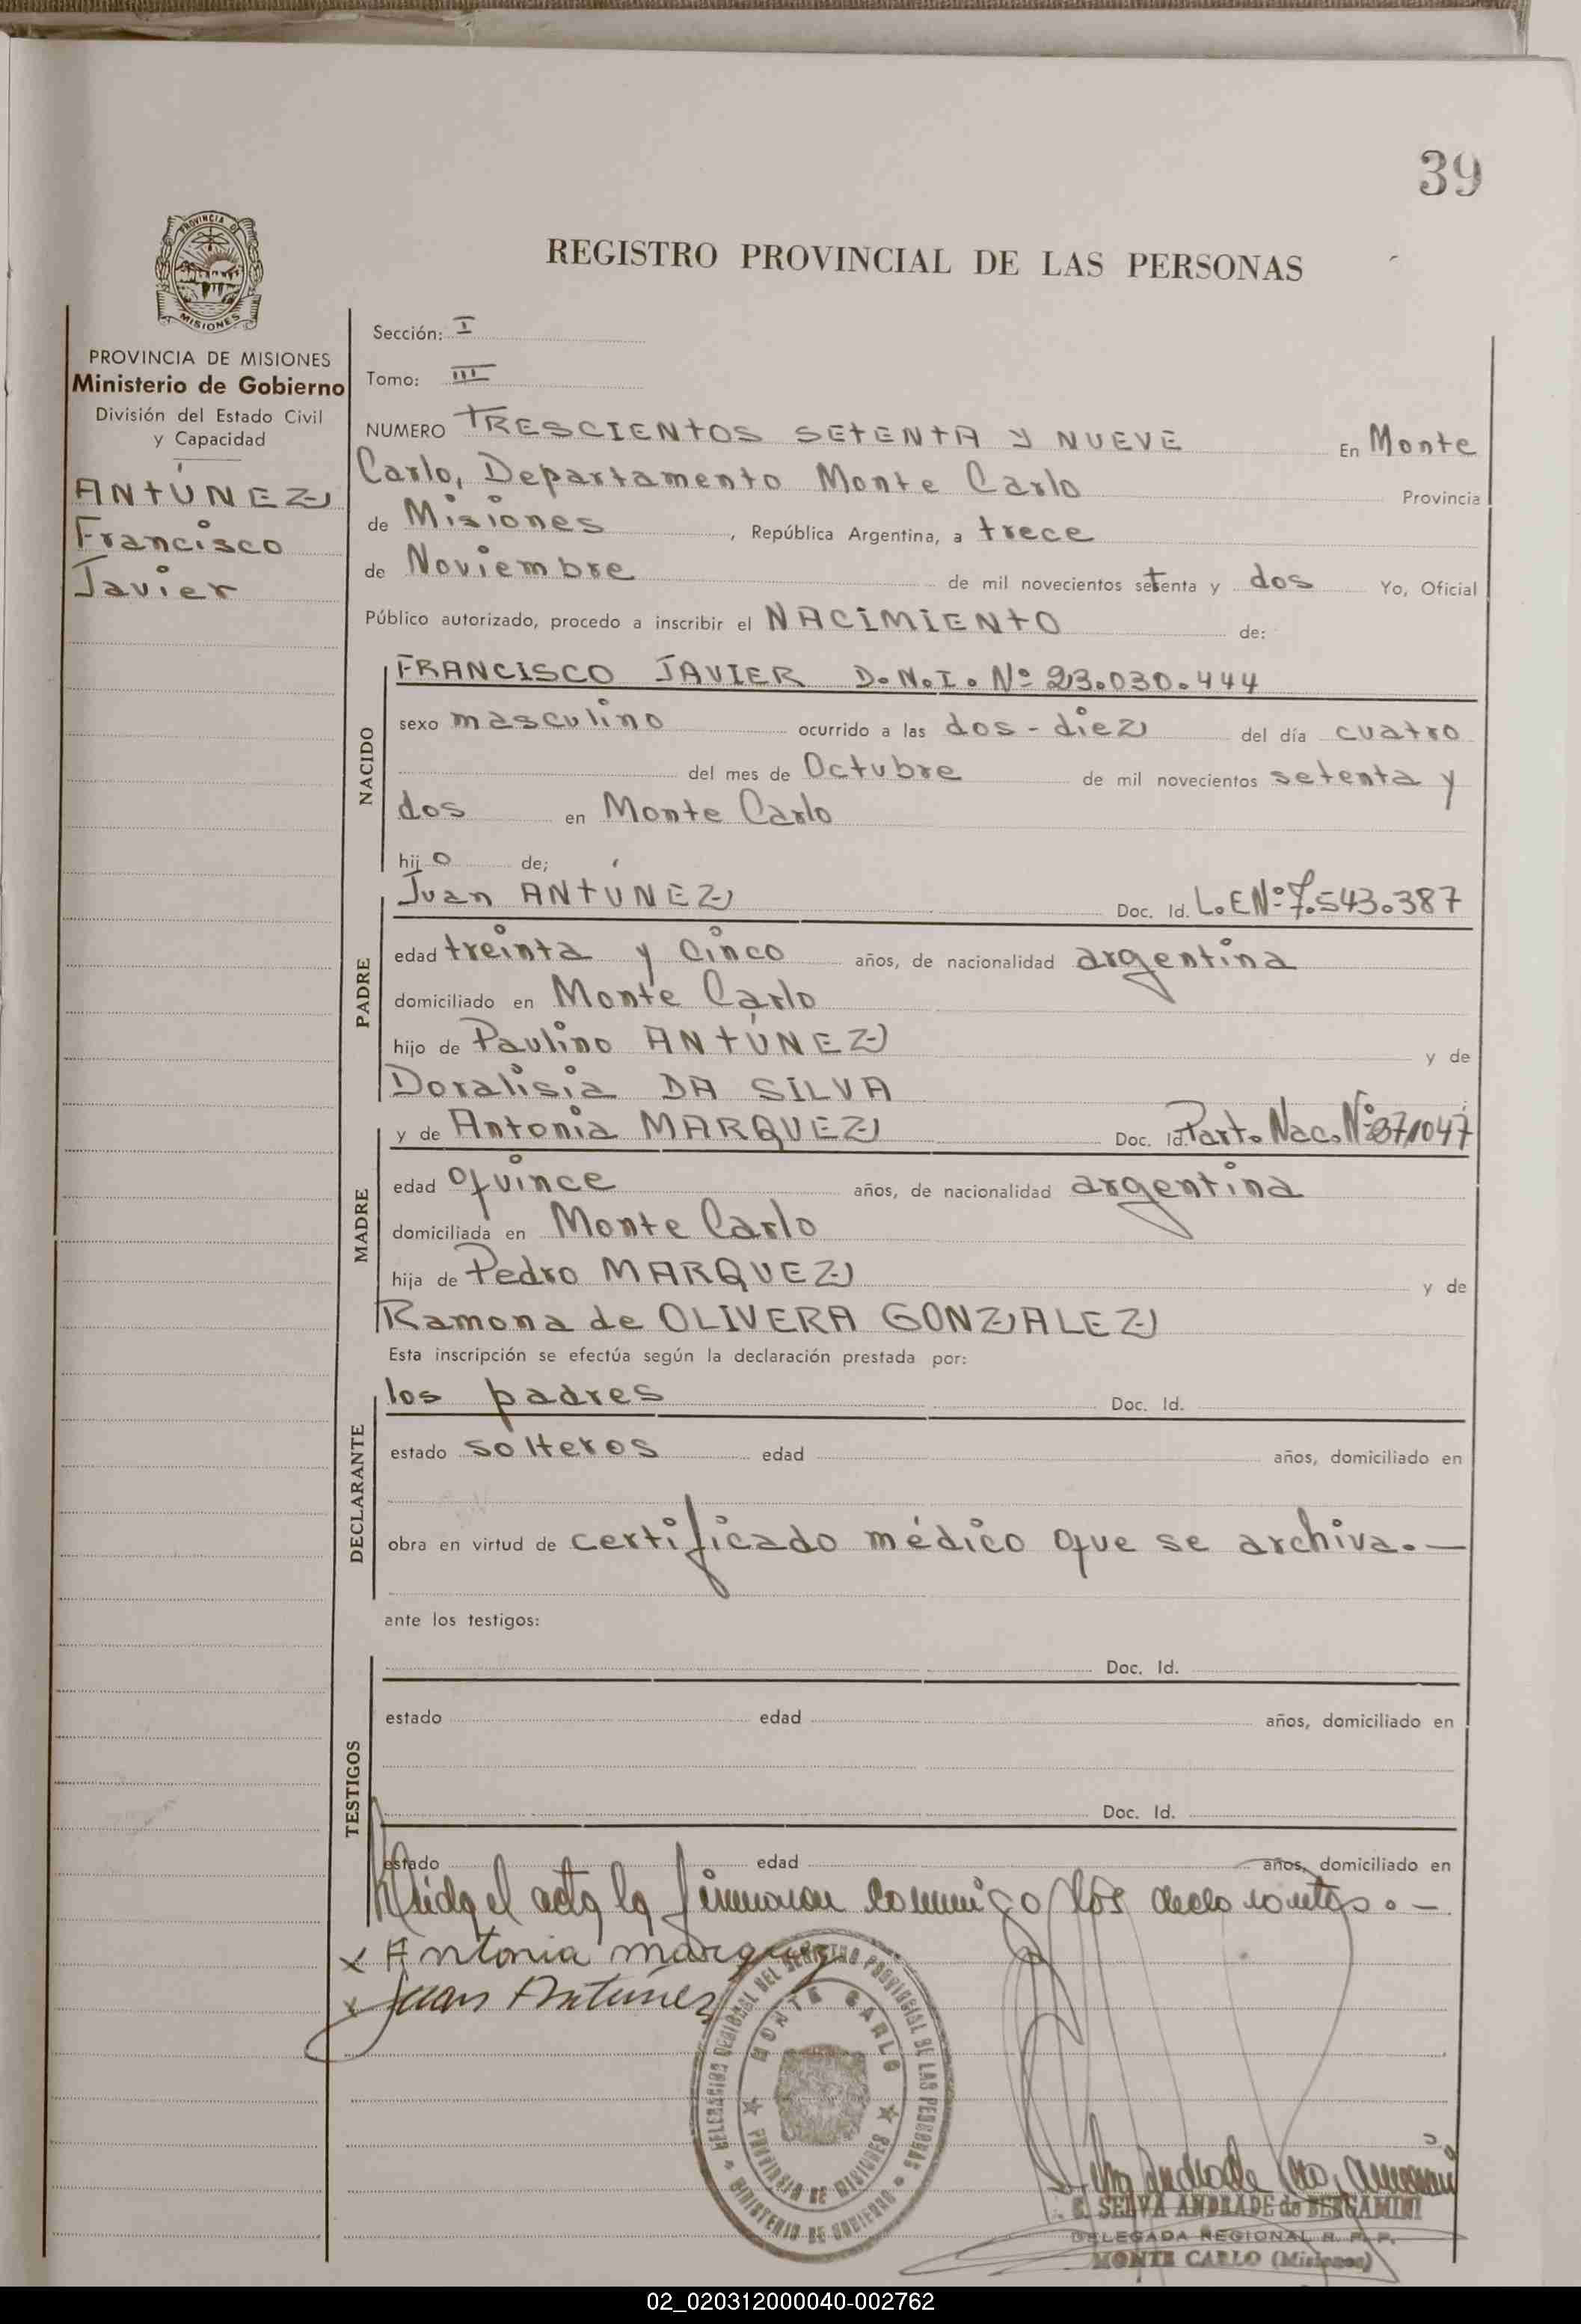 39
PROVINCIA DE
MISIONES
REGISTRO PROVINCIAL DE LAS PERSONAS
PROVINCIA DE MISIONES
Ministerio de Gobierno
División del Estado Civil
y Capacidad
ANTÚNEZ
Francisco
Javier
Sección: I
Tomo: III
NUMERO TRESCIENTOS SETENTA Y NUEVE En Monte
Carlo, Departamento Monte Carlo Provincia
de Misiones, República Argentina, a trece
de Noviembre de mil novecientos setenta y dos Yo, Oficial
Público autorizado, procedo a inscribir el NACIMIENTO de:
NACIDO
FRANCISCO JAVIER D.N.I. Nº 23.030.444
sexo masculino ocurrido a las dos-diez del día cuatro
del mes de Octubre de mil novecientos setenta y
dos en Monte Carlo
hijo de;
PADRE
Juan ANTÚNEZ Doc. Id. L.E Nº 7.543.387
edad treinta y cinco años, de nacionalidad argentina
domiciliado en Monte Carlo
hijo de Paulino ANTÚNEZ y de
Doralisia DA SILVA
MADRE
y de Antonia MARQUEZ Doc. Id. Part. Nac. Nº 371047
edad quince años, de nacionalidad argentina
domiciliada en Monte Carlo
hija de Pedro MARQUEZ y de
Ramona de OLIVERA GONZALEZ
Esta inscripción se efectúa según la declaración prestada por:
DECLARANTE
los padres Doc. Id.
estado solteros edad años, domiciliado en
obra en virtud de certificado médico que se archiva.—
ante los testigos:
TESTIGOS
Doc. Id.
estado edad años, domiciliado en
Doc. Id.
estado edad años, domiciliado en
el acta la firmaron conmigo los declarantes.—
x Antonia marquez
x Juan Antúnez
DELEGACION REGIONAL DEL REGISTRO PROVINCIAL DE LAS PERSONAS
MONTE CARLO
PROVINCIA DE MISIONES
MINISTERIO DE GOBIERNO
S. SELVA ANDRADE de BERGAMINI
DELEGADA REGIONAL R. P. P.
MONTE CARLO (Misiones)
02_020312000040-002762